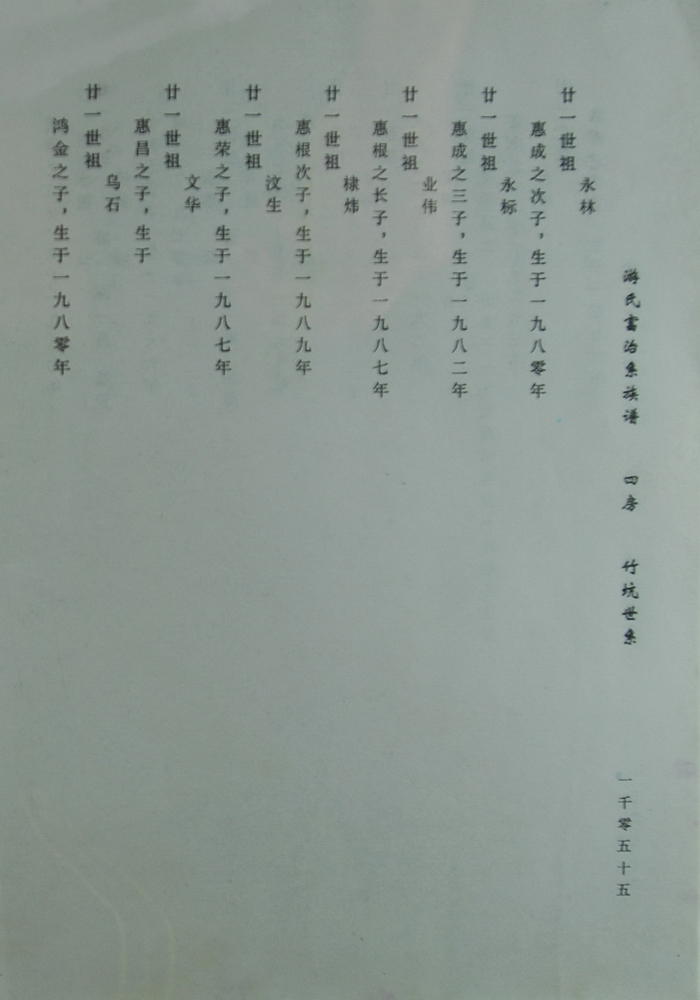 游氏富治系族谱 四房 竹坑世系 一千零五十五
廿一世祖 永林
惠成之次子，生于一九八零年
廿一世祖 永标
惠成之三子，生于一九八二年
廿一世祖 业伟
惠根之长子，生于一九八七年
廿一世祖 棣炜
惠根次子，生于一九八九年
廿一世祖 汶生
惠荣之子，生于一九八七年
廿一世祖 文华
惠昌之子，生于
廿一世祖 乌石
鸿金之子，生于一九八零年